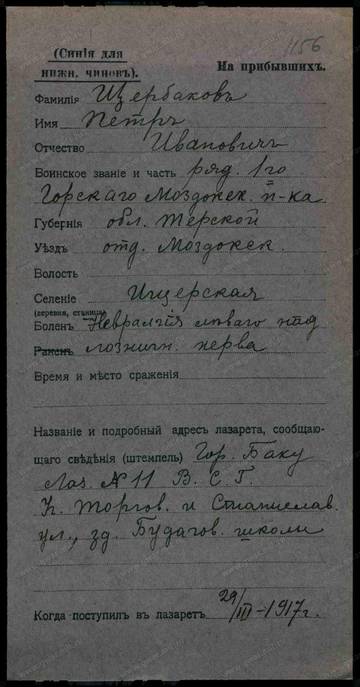 1156
(Синія для
нижн. чиновъ).
На прибывшихъ.
Фамилія Щербаковъ
Имя Петръ
Отчество Ивановичъ
Воинское званіе и часть ряд. 1го
Горскаго Моздокск. п-ка
Губернія обл. Терской
Уѣздъ отд. Моздокск.
Волость
Селеніе Ищерская
(деревня, станица)
Боленъ Невралгія лѣваго
Раненъ нерва
Время и мѣсто сраженія
Названіе и подробный адресъ лазарета, сообщаю-
щаго свѣдѣнія (штемпель) Гор. Баку
Лаз. № 11 В. С. Г.
Торгов. и Станислав.
ул., зд. Будагов. школы
Когда поступилъ въ лазаретъ 29/III-1917г.